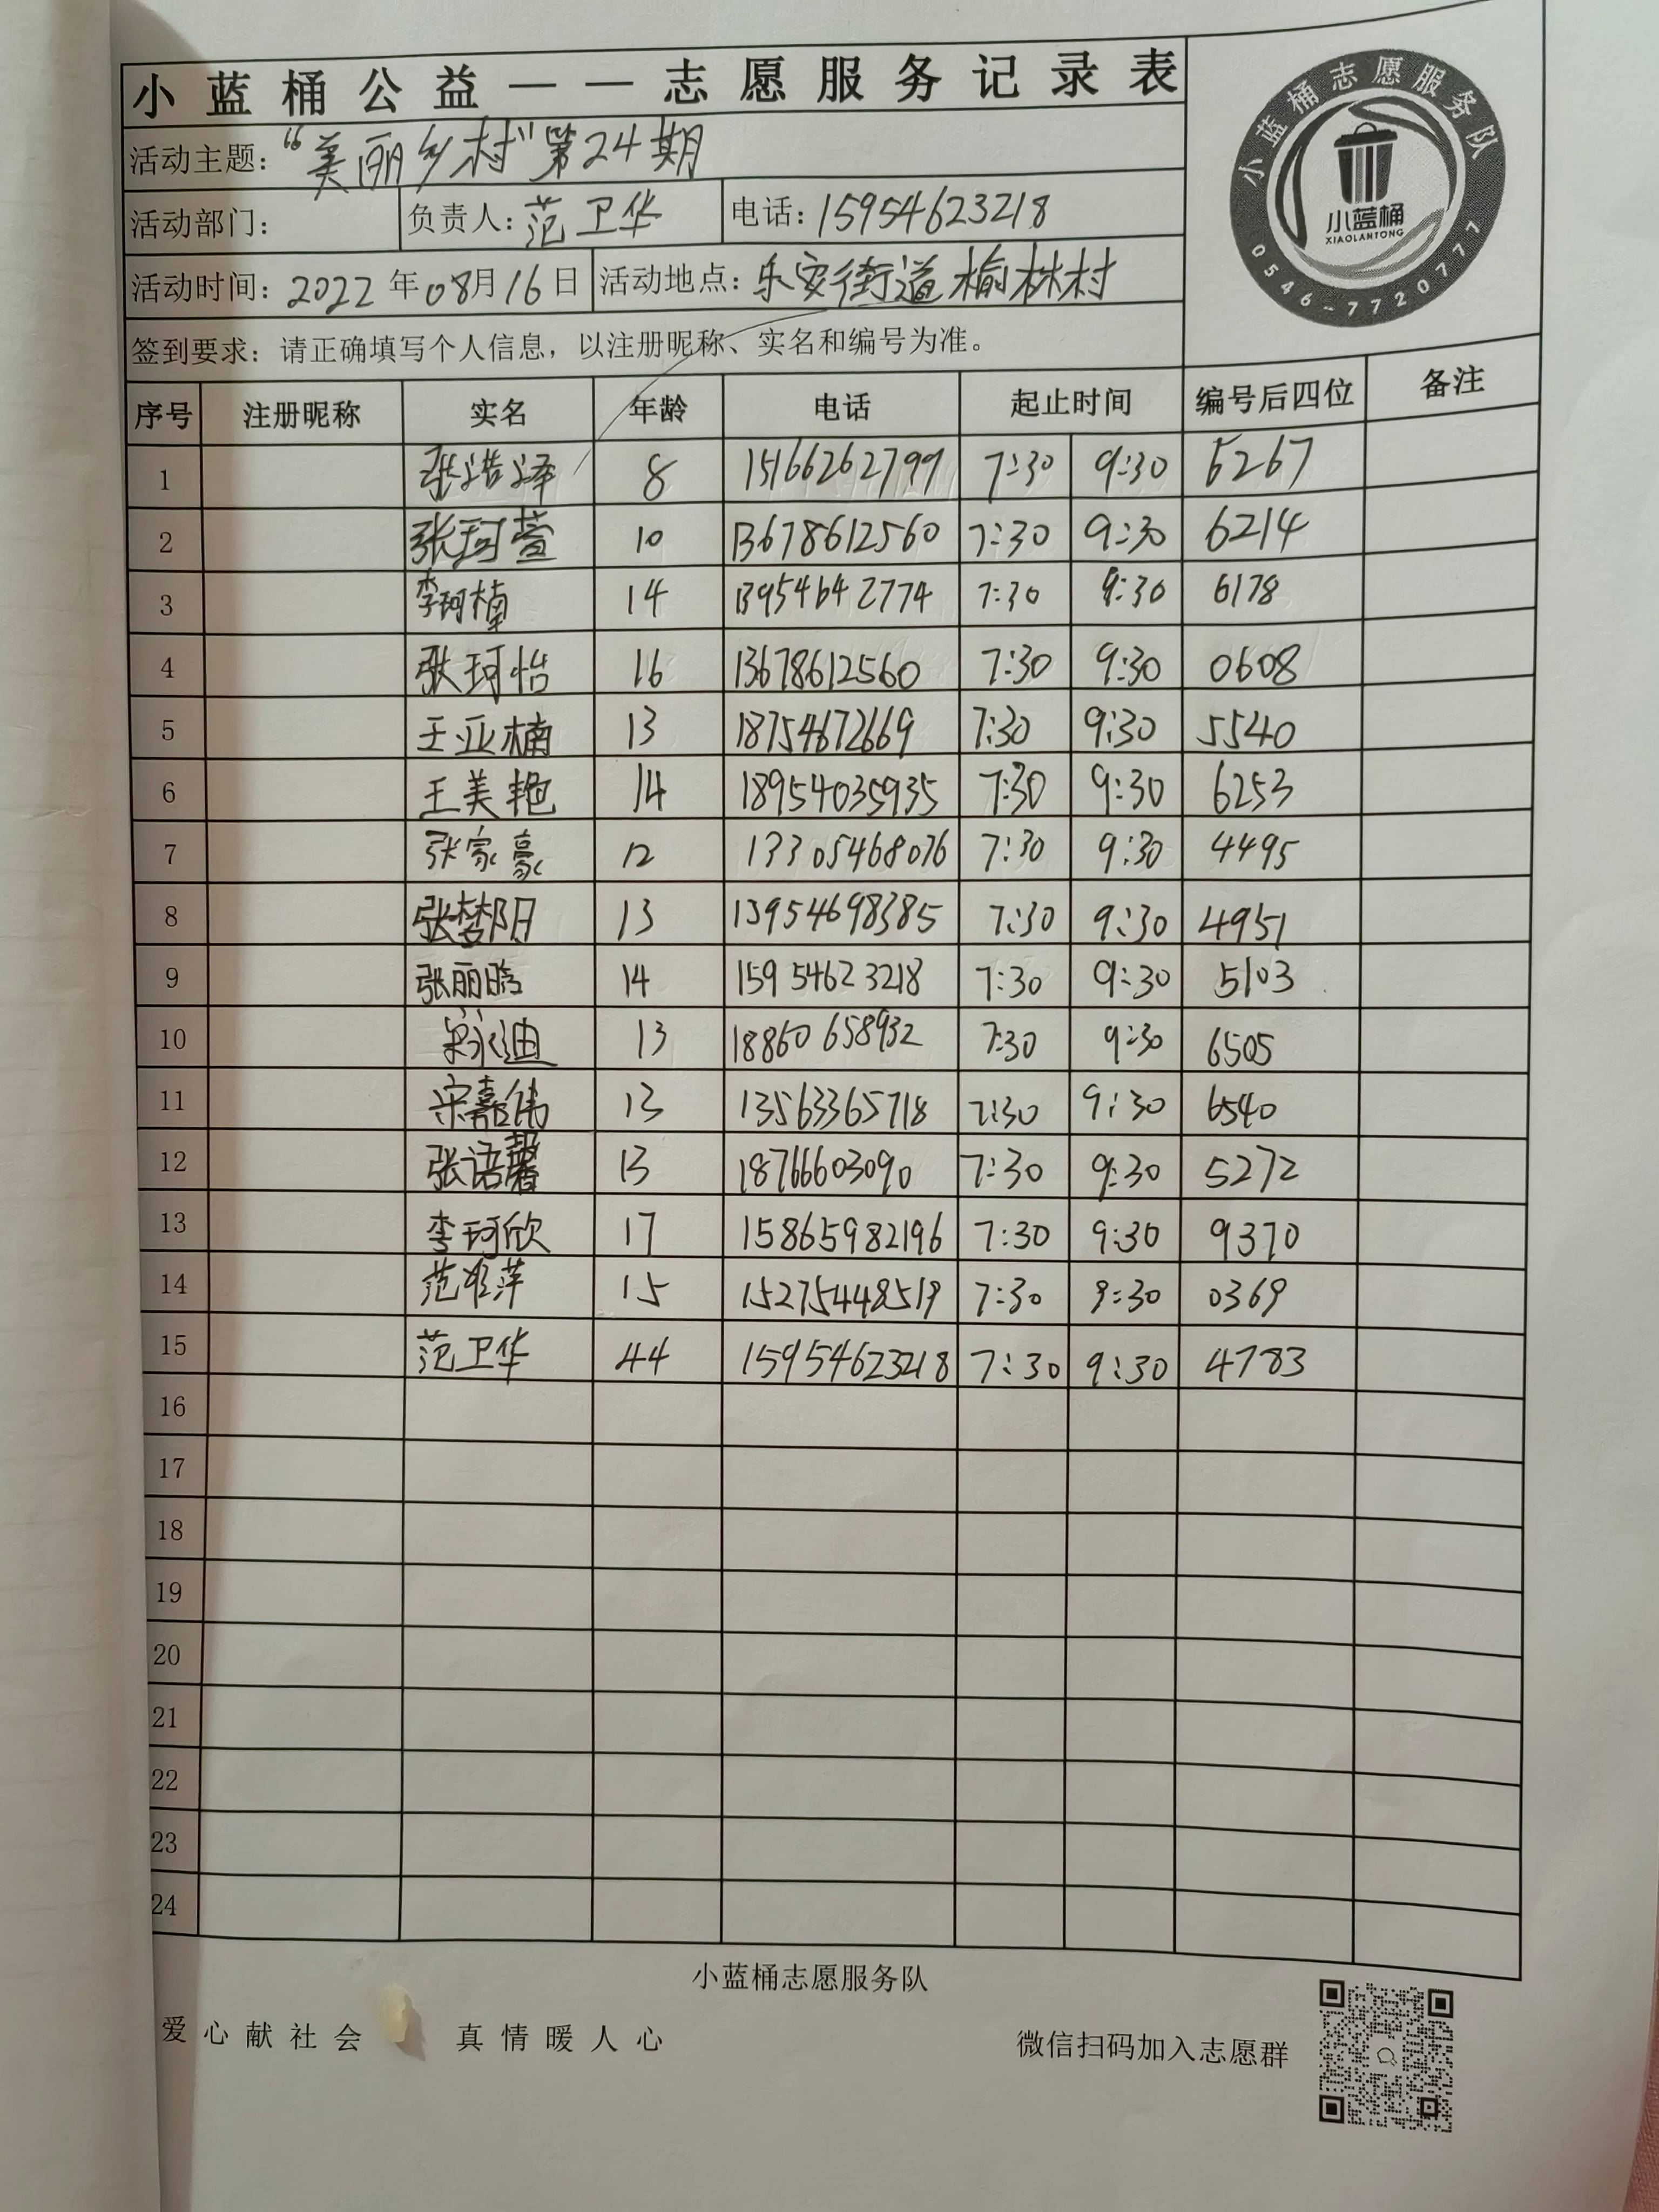 小蓝桶公益——志愿服务记录表
活动主题：“美丽乡村”第24期
活动部门： 负责人：范卫华 电话：15954623218
活动时间：2022年08月16日 活动地点：乐安街道榆林村
签到要求：请正确填写个人信息，以注册昵称、实名和编号为准。
小蓝桶志愿服务队
小蓝桶
XIAOLANTONG
0546-7720777
序号 注册昵称 实名 年龄 电话 起止时间 编号后四位 备注
1 张浩泽 8 15166262799 7:30 9:30 5267
2 张珂萱 10 13678612560 7:30 9:30 6214
3 李珂楠 14 13954642774 7:30 9:30 6178
4 张珂怡 16 13678612560 7:30 9:30 0608
5 王亚楠 13 18754672669 7:30 9:30 5540
6 王美艳 14 18954035935 7:30 9:30 6253
7 张家豪 12 13305468076 7:30 9:30 4495
8 张梦阳 13 13954698385 7:30 9:30 4951
9 张丽晗 14 15954623218 7:30 9:30 5103
10 13 18860658932 7:30 9:30 6505
11 宋嘉伟 13 13563365718 7:30 9:30 6540
12 张语馨 13 18766603090 7:30 9:30 5272
13 李珂欣 17 15865982196 7:30 9:30 9370
14 15 15275448519 7:30 9:30 0369
15 范卫华 44 15954623218 7:30 9:30 4783
16
17
18
19
20
21
22
23
24
小蓝桶志愿服务队
爱心献社会 真情暖人心
微信扫码加入志愿群